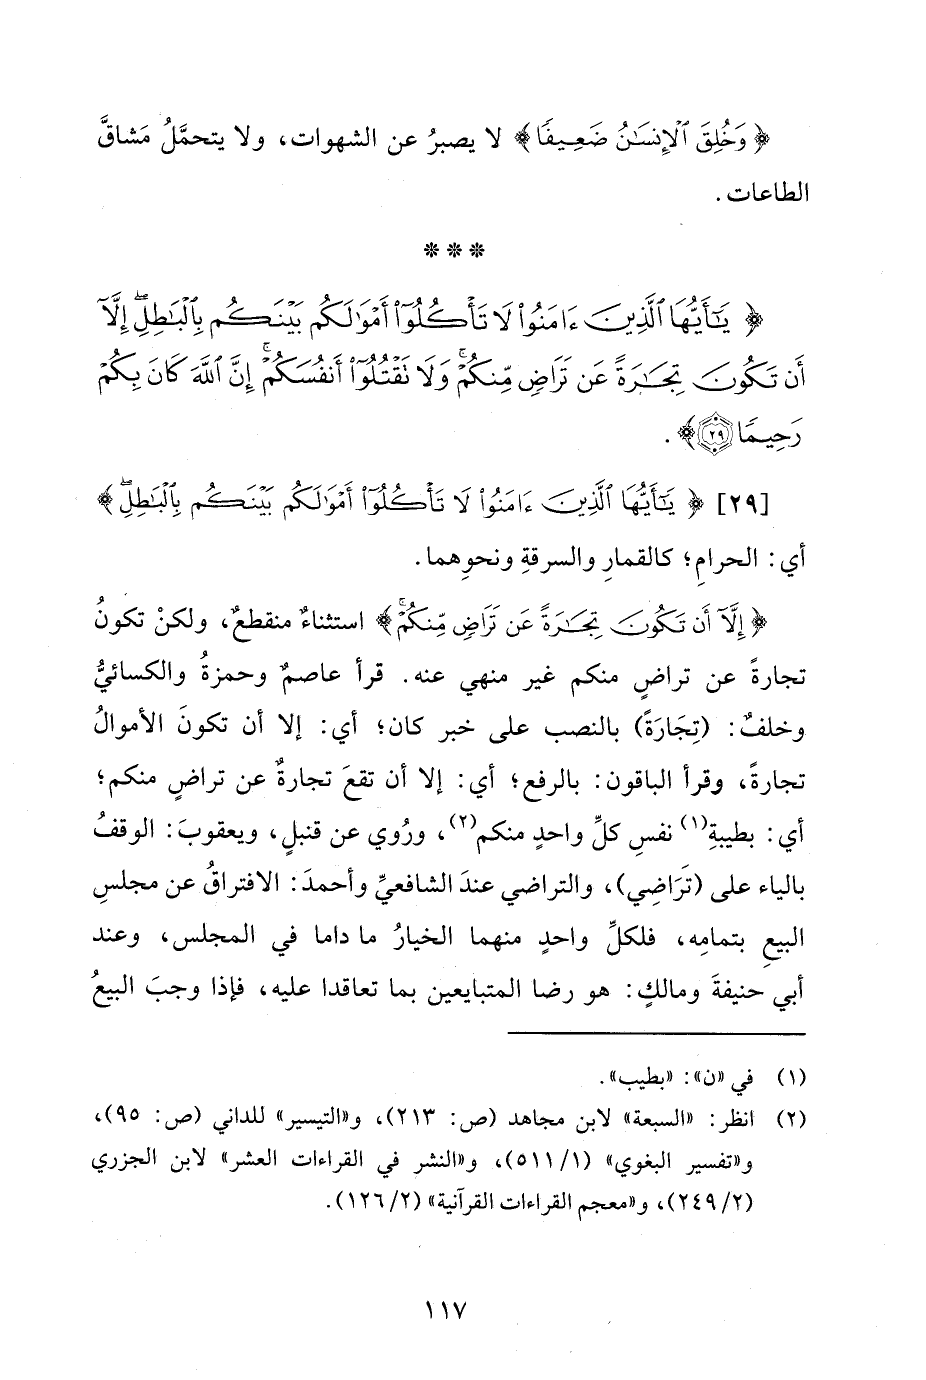 ﴿ وَخُلِقَ ٱلْإِنسَٰنُ ضَعِيفًا ﴾ لا يصبرُ عن الشهوات، ولا يتحمَّلُ مَشاقَّ
الطاعات.
***
﴿ يَٰٓأَيُّهَا ٱلَّذِينَ ءَامَنُوا۟ لَا تَأْكُلُوٓا۟ أَمْوَٰلَكُم بَيْنَكُم بِٱلْبَٰطِلِ إِلَّآ
أَن تَكُونَ تِجَٰرَةً عَن تَرَاضٍ مِّنكُمْ ۚ وَلَا تَقْتُلُوٓا۟ أَنفُسَكُمْ ۚ إِنَّ ٱللَّهَ كَانَ بِكُمْ
رَحِيمًا ﴿٢٩﴾ ﴾.
[٢٩] ﴿ يَٰٓأَيُّهَا ٱلَّذِينَ ءَامَنُوا۟ لَا تَأْكُلُوٓا۟ أَمْوَٰلَكُم بَيْنَكُم بِٱلْبَٰطِلِ ﴾
أي: الحرامِ؛ كالقمارِ والسرقةِ ونحوِهما.
﴿ إِلَّآ أَن تَكُونَ تِجَٰرَةً عَن تَرَاضٍ مِّنكُمْ ۚ ﴾ استثناءٌ منقطعٌ، ولكنْ تكونُ
تجارةً عن تراضٍ منكم غير منهي عنه. قرأ عاصمٌ وحمزةُ والكسائيُّ
وخلفٌ: (تِجَارَةً) بالنصب على خبر كان؛ أي: إلا أن تكونَ الأموالُ
تجارةً، وقرأ الباقون: بالرفع؛ أي: إلا أن تقعَ تجارةٌ عن تراضٍ منكم؛
أي: بطيبةِ(١) نفسِ كلِّ واحدٍ منكم(٢)، ورُوي عن قنبلٍ، ويعقوبَ: الوقفُ
بالياء على (تَرَاضِي)، والتراضي عندَ الشافعيِّ وأحمدَ: الافتراقُ عن مجلسِ
البيعِ بتمامِه، فلكلِّ واحدٍ منهما الخيارُ ما داما في المجلس، وعند
أبي حنيفةَ ومالكٍ: هو رضا المتبايعين بما تعاقدا عليه، فإذا وجبَ البيعُ
(١) في «ن»: «بطيب».
(٢) انظر: «السبعة» لابن مجاهد (ص: ٢١٣)، و«التيسير» للداني (ص: ٩٥)،
و«تفسير البغوي» (١/ ٥١١)، و«النشر في القراءات العشر» لابن الجزري
(٢/ ٢٤٩)، و«معجم القراءات القرآنية» (٢/ ١٢٦).
١١٧